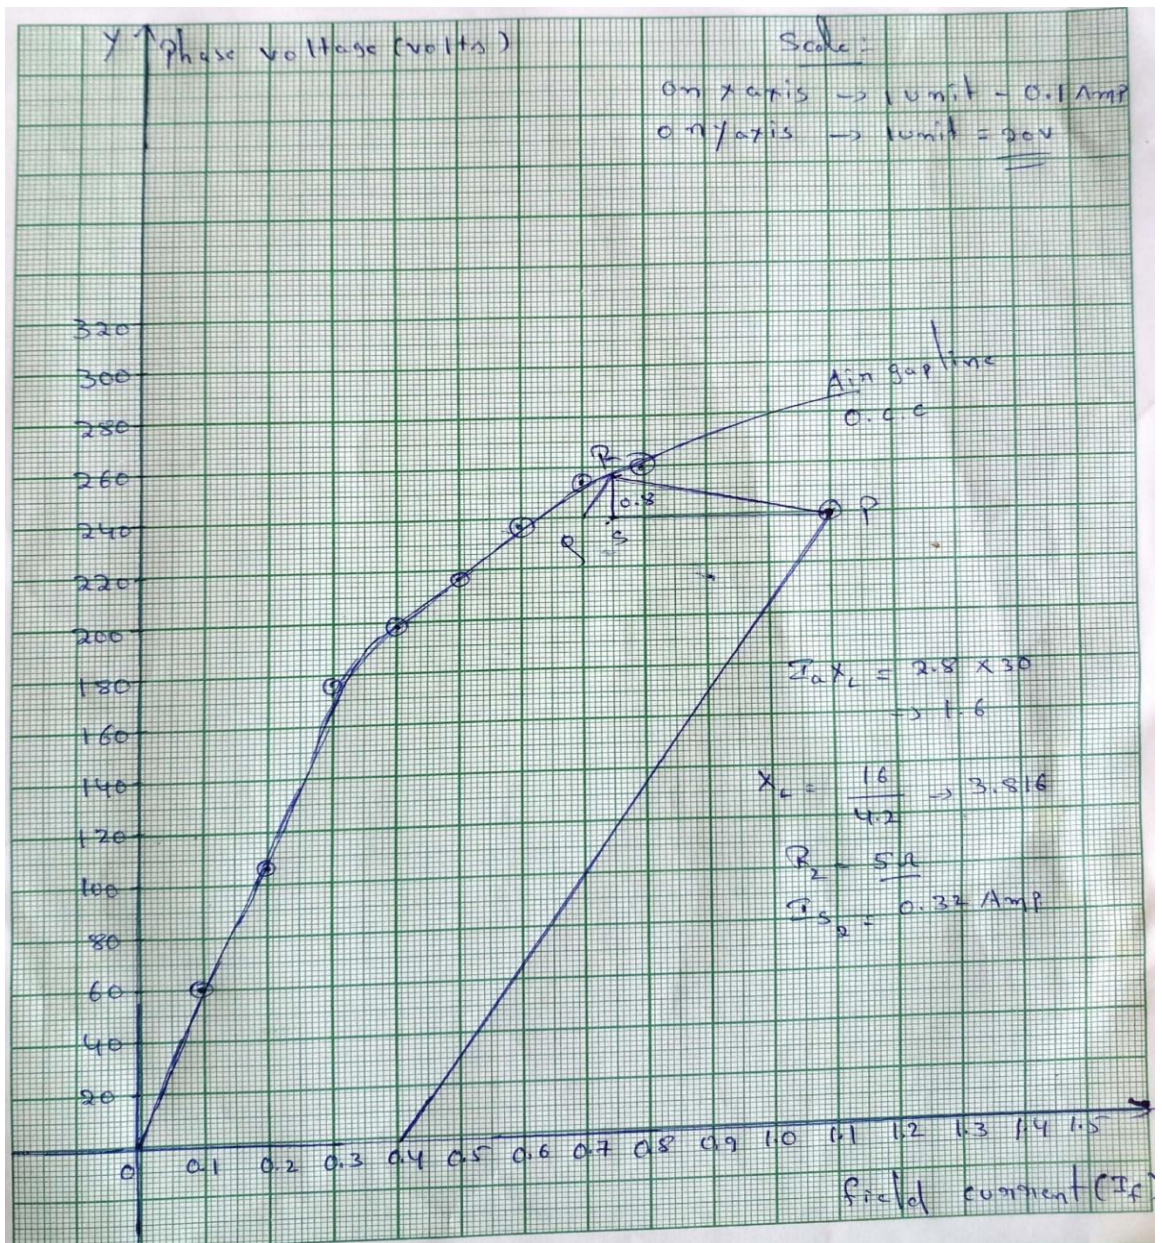 Y Phase voltage (volts)
Scale:
on x axis → 1 unit - 0.1 Amp
on y axis → 1 unit = 20V
320
300
280
260
240
220
200
180
160
140
120
100
80
60
40
20
Air gap line
O.C C
R
0.8
Q
S
P
IaXL = 2.8 × 30
→ 1.6
XL = 16/4.2 → 3.816
R2 - 5Ω
= 0.32 Amp
0 0.1 0.2 0.3 0.4 0.5 0.6 0.7 0.8 0.9 1.0 1.1 1.2 1.3 1.4 1.5
field current (If)